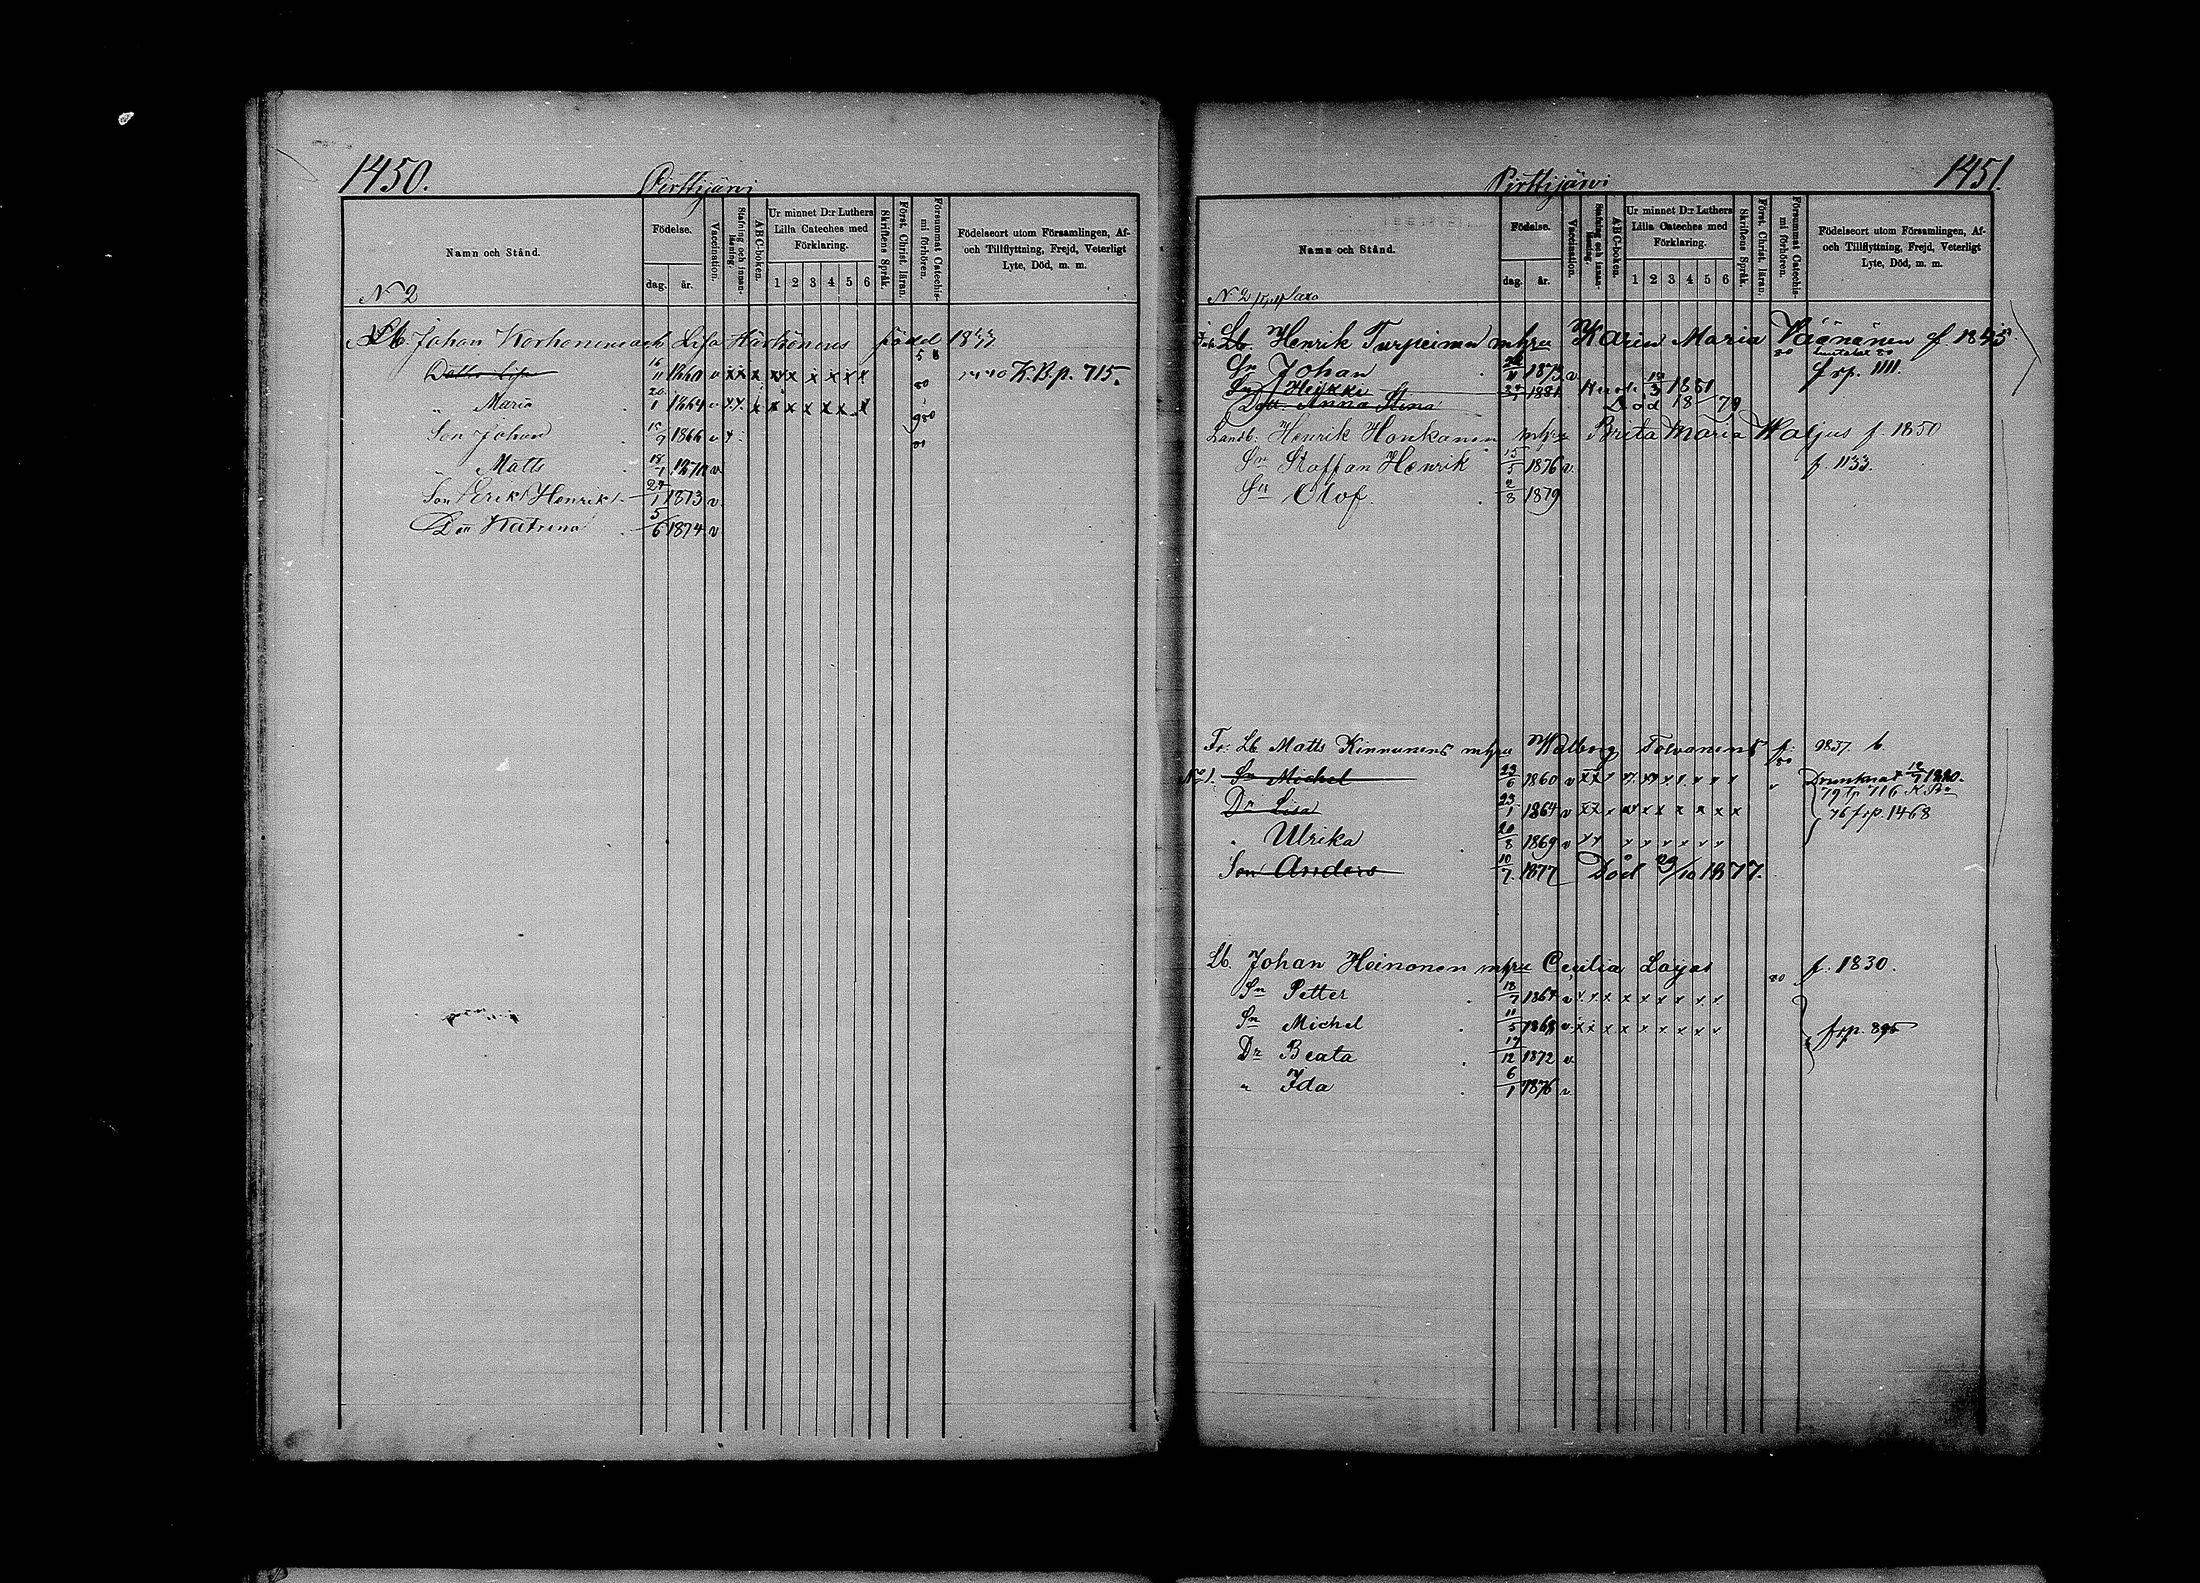 1450.
Pirttijärvi
Namn och Stånd.
Födelse.
dag.
år.
Vaccination.
Stafning och innanläsning.
ABC-boken.
Ur minnet D:r Luthers Lilla Cateches med Förklaring.
1 2 3 4 5 6
Skriftens Språk.
Först. Christ. läran.
Försummat Catechismi förhören.
Födelseort utom Församlingen, Af- och Tillflyttning, Frejd, Veterligt Lyte, Död, m. m.
N 2
Lb. Johan Korhonen och Lisa Härkönens född 1833
Dottr Lisa 16/11 1860 v xx x x x x x x x 80 K.B.p. 715.
" Maria 20/1 1864 v x x x x x x x x x
Son Johan 15/9 1866 v x 80
" Matts 18/1 1870 v
Son Erik Henrik 27/1 1873 v
Don Katrina 5/6 1874 v
Pirttijärvi
1451.
Namn och Stånd.
Födelse.
dag.
år.
Vaccination.
Stafning och innanläsning.
ABC-boken.
Ur minnet D:r Luthers Lilla Cateches med Förklaring.
1 2 3 4 5 6
Skriftens Språk.
Först. Christ. läran.
Försummat Catechismi förhören.
Födelseort utom Församlingen, Af- och Tillflyttning, Frejd, Veterligt Lyte, Död, m. m.
N 2
Lb. Henrik Turpeinen m hru Karin Maria Väänänen f 1845
Sn Johan 1873 v frp. 1111.
Sn Heikki 1881 1881
Dottr Anna Stina Död 18 79
Landb: Henrik Honkanen m hru Brita Maria Waljus f. 1850
Sn Staffan Henrik 15/5 1876 v. f. 1133.
Sn Olof 2/8 1879
Fr: Lb Matts Kinnunens m hru Walborg Tolvanens f:
No 1. Sn Michel 23/6 1860 v xx Drunknat 12/7 1880.
Dr Lisa 23/1 1864 v xx x x x x x x x 79 fp 716 K.B.
76 frp. 1468
" Ulrika 20/8 1869 v x x v v v v v v
Son Anders 10/7 1877 Död 29/10 1877.
Lb. Johan Heinonen m hru Cecilia Laijas 80 f: 1830.
Sn Petter 18/7 1864 v x x x x x x x x x
Sn Michel 11/5 1868 v x x x x x x x x x frp. 895
Dr Beata 17/12 1872 v.
" Ida 6/1 1876 v